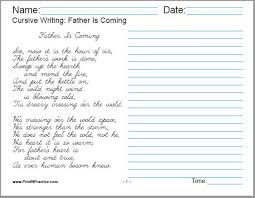 Name: Date:
Cursive Writing: Father Is Coming
Father Is Coming
See, now it is the hour of six,
The father's work is done,
Sweep up the hearth
and mend the fire,
And put the kettle on,
The wild night wind
is blowing cold,
'Tis dreary o'er the wold.
He's crossing o'er the wold apace,
He's stronger than the storm,
He does not feel the cold, not he,
His heart it is so warm,
For father's heart is
stout and true,
As ever human bosom knew.
www.PrintNPractice.com - 1 - Time: